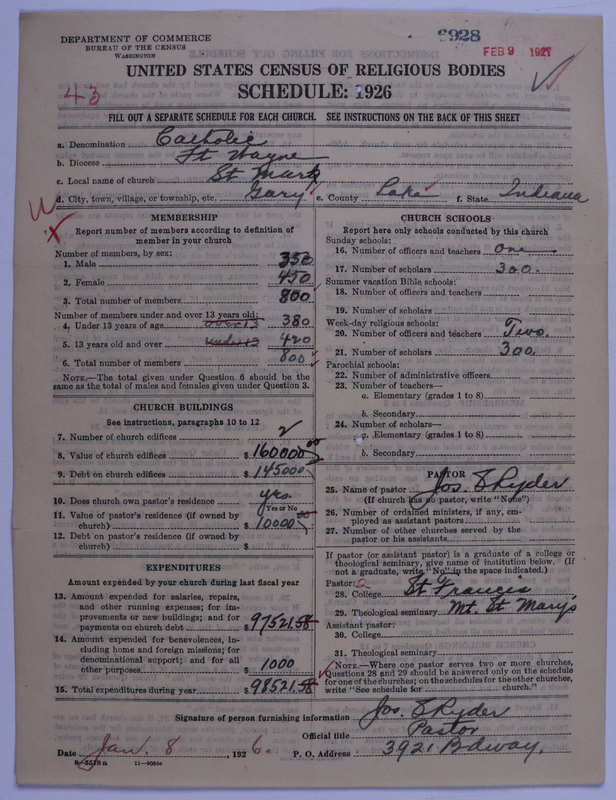 DEPARTMENT OF COMMERCE
BUREAU OF THE CENSUS
WASHINGTON
6928
FEB 9 1927
UNITED STATES CENSUS OF RELIGIOUS BODIES
43
SCHEDULE: 1926
FILL OUT A SEPARATE SCHEDULE FOR EACH CHURCH. SEE INSTRUCTIONS ON THE BACK OF THIS SHEET
a. Denomination Catholic
b. Diocese Ft Wayne
c. Local name of church St Marks
d. City, town, village, or township, etc. Gary e. County Lake f. State Indiana
MEMBERSHIP
Report number of members according to definition of
member in your church
Number of members, by sex:
1. Male 350
2. Female 450
3. Total number of members 800
Number of members under and over 13 years old:
4. Under 13 years of age over 13 380
5. 13 years old and over under 13 420
6. Total number of members 800
NOTE.—The total given under Question 6 should be
the same as the total of males and females given under Question 3.
CHURCH BUILDINGS
See instructions, paragraphs 10 to 12
7. Number of church edifices 2
8. Value of church edifices $ 160000 00
9. Debt on church edifices $ 145000
10. Does church own pastor's residence yes
Yes or No
11. Value of pastor's residence (if owned by
church) $ 10000 00
12. Debt on pastor's residence (if owned by
church) $
EXPENDITURES
Amount expended by your church during last fiscal year
13. Amount expended for salaries, repairs,
and other running expenses; for im-
provements or new buildings; and for
payments on church debt $ 97521.58
14. Amount expended for benevolences, in-
cluding home and foreign missions; for
denominational support; and for all
other purposes $ 1000
15. Total expenditures during year $ 98521.58
CHURCH SCHOOLS
Report here only schools conducted by this church
Sunday schools:
16. Number of officers and teachers one
17. Number of scholars 300.
Summer vacation Bible schools:
18. Number of officers and teachers
19. Number of scholars
Week-day religious schools:
20. Number of officers and teachers Two.
21. Number of scholars 300.
Parochial schools:
22. Number of administrative officers
23. Number of teachers—
a. Elementary (grades 1 to 8)
b. Secondary
24. Number of scholars—
a. Elementary (grades 1 to 8)
b. Secondary
PASTOR
25. Name of pastor Jos. E Ryder
(If church has no pastor, write "No")
26. Number of ordained ministers, if any, em-
ployed as assistant pastors
27. Number of other churches served by the
pastor or his assistants
If pastor (or assistant pastor) is a graduate of a college or
theological seminary, give name of institution below. (If
not a graduate, write "No" in the space indicated.)
Pastor: 2
28. College St Francis
29. Theological seminary Mt. St Mary's
Assistant pastor:
30. College
31. Theological seminary
NOTE.—Where one pastor serves two or more churches,
Questions 28 and 29 should be answered only on the schedule
for one of the churches; on the schedules for the other churches,
write "See schedule for church."
Signature of person furnishing information Jos. E Ryder
Official title Pastor
Date Jan. 8, 1926. P. O. Address 3921 Bdway.
8—5518 a 11—9034